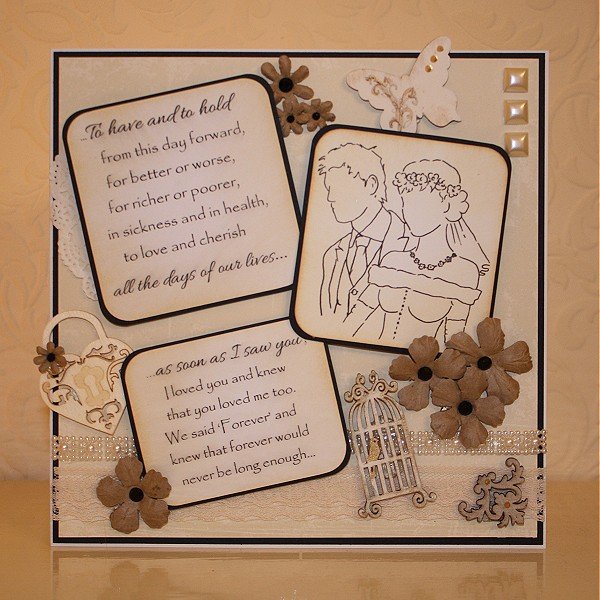 ...To have and to hold
from this day forward,
for better or worse,
for richer or poorer,
in sickness and in health,
to love and cherish
all the days of our lives...
...as soon as I saw you,
I loved you and knew
that you loved me too.
We said 'Forever' and
knew that forever would
never be long enough...